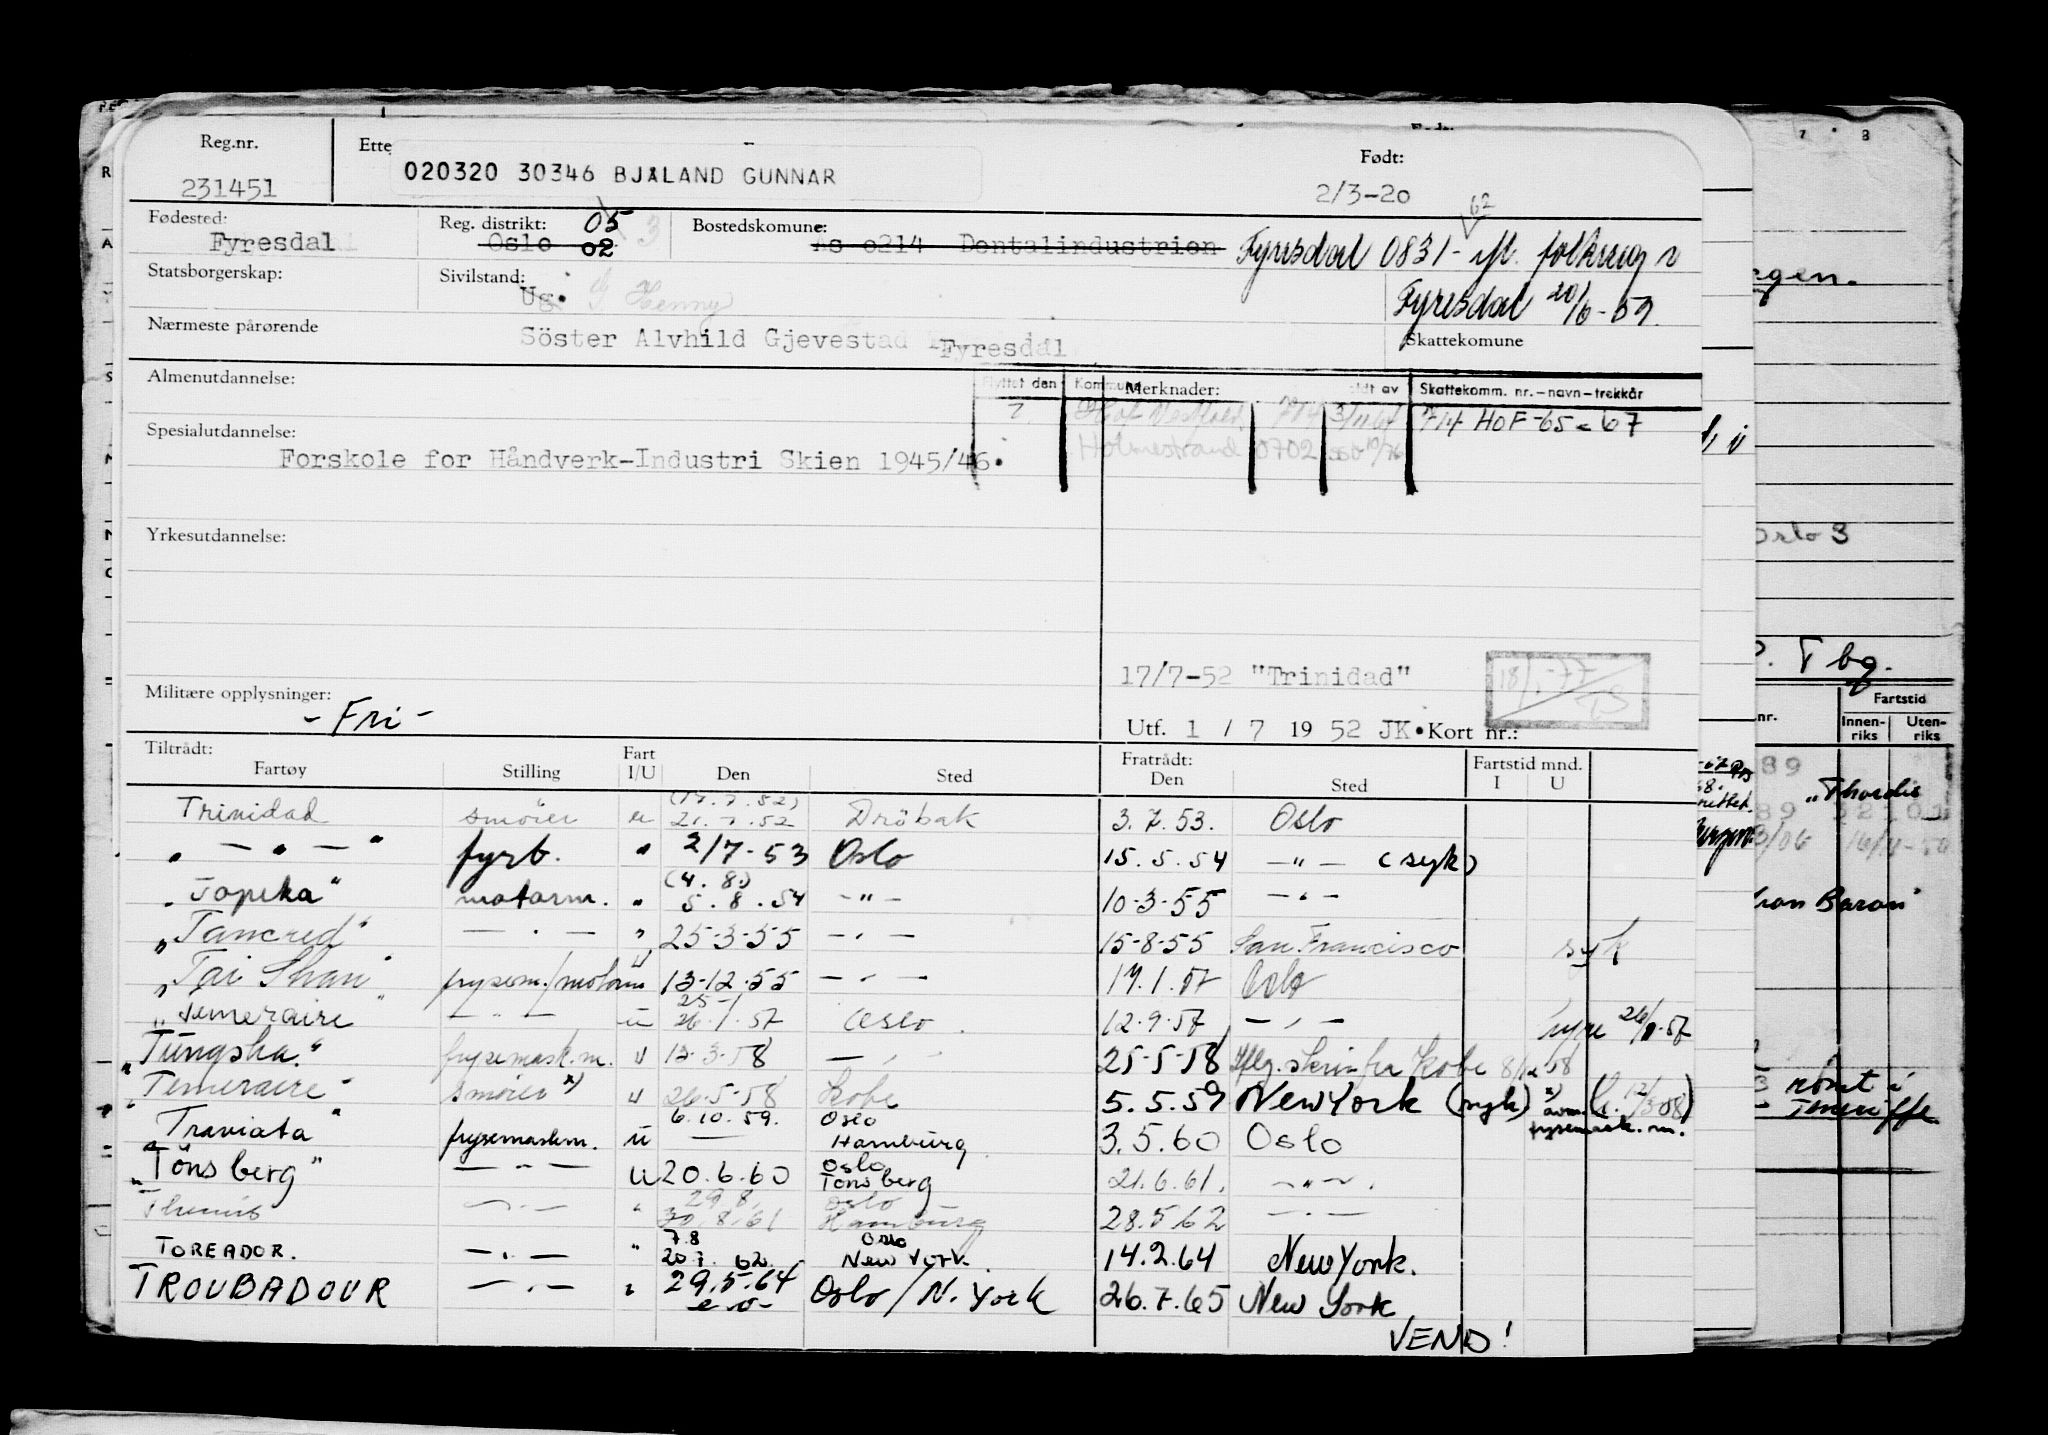 Reg.nr. Ette Født:
231451 020320 30346 BJÅLAND GUNNAR 2/3-20
Fødested: Reg. distrikt: 05 3 Bostedskommune: 62
Fyresdal Oslo 02 As 0214 Dentalindustrien Fyresdal 0831- ifl. folkereg i
Statsborgerskap: Sivilstand: Fyresdal 20/6-59.
Ug. G Henny
Nærmeste pårørende Söster Alvhild Gjevestad Fyresdal Skattekomune
Almenutdannelse: Flyttet den Kommune Merknader: ldt av Skattekomm. nr.-navn-trekkår
? Hof Vestfold 714 3/11 64 714 HOF -65 - 67
Spesialutdannelse: Holmestrand 0702
Forskole for Håndverk-Industri Skien 1945/46.
Yrkesutdannelse:
17/7-52 "Trinidad" 18/1-77 TS
Militære opplysninger:
- Fri - Utf. 1 / 7 19 52 JK. Kort nr.:
Tiltrådt: Fart Fratrådt: Fartstid mnd.
Fartøy Stilling I/U Den Sted Den Sted I U
Trinidad smører u (17.7.52) 21.7.52 Dröbak 3.7.53. Oslo
" — " — " fyrb. " 2/7-53 Oslo 15.5.54 —"— (syk)
"Topeka" motorm. " (4.8.) 5.8.54 —"— 10-3-55 —"—
"Tancred" — " — " 25-3-55 —"— 15-8-55 San Francisco syk
"Tai Shan" frysem./motorm u 13-12-55 —"— 17.1.57 Oslo
"Temeraire" — " — u 25-1 26-1-57 Oslo. 12-9-57 —"—
"Tungsha" frysemask.m. u 12-3-58 —"— 25-5-58 Kobe
"Temeraire" smører x) u 26-5-58 Kobe 5.5.59 New York (syk) x)
"Traviata" frysemaskm. u 6.10.59. — Oslo Hamburg 3.5.60 Oslo frysemask.m.
"Tönsberg" — " — u 20.6.60 Oslo Tönsberg 21.6.61. —"—.
Themis — " — " 29.8. 30.8.61 Oslo Hamburg 28.5 62 —"—
TOREADOR. — " — " 7.8 20.7. 62. Oslo New York. 14.2.64 New York.
TROUBADOUR — " — " 29.5.64 Oslo / N. York 26.7.65 New York
VEND!
Oslo 3
P. Tbg.
nr. Fartstid
Innen-riks Uten-riks
"Thordis
Iron Baron"
rømt i
Teneriffe